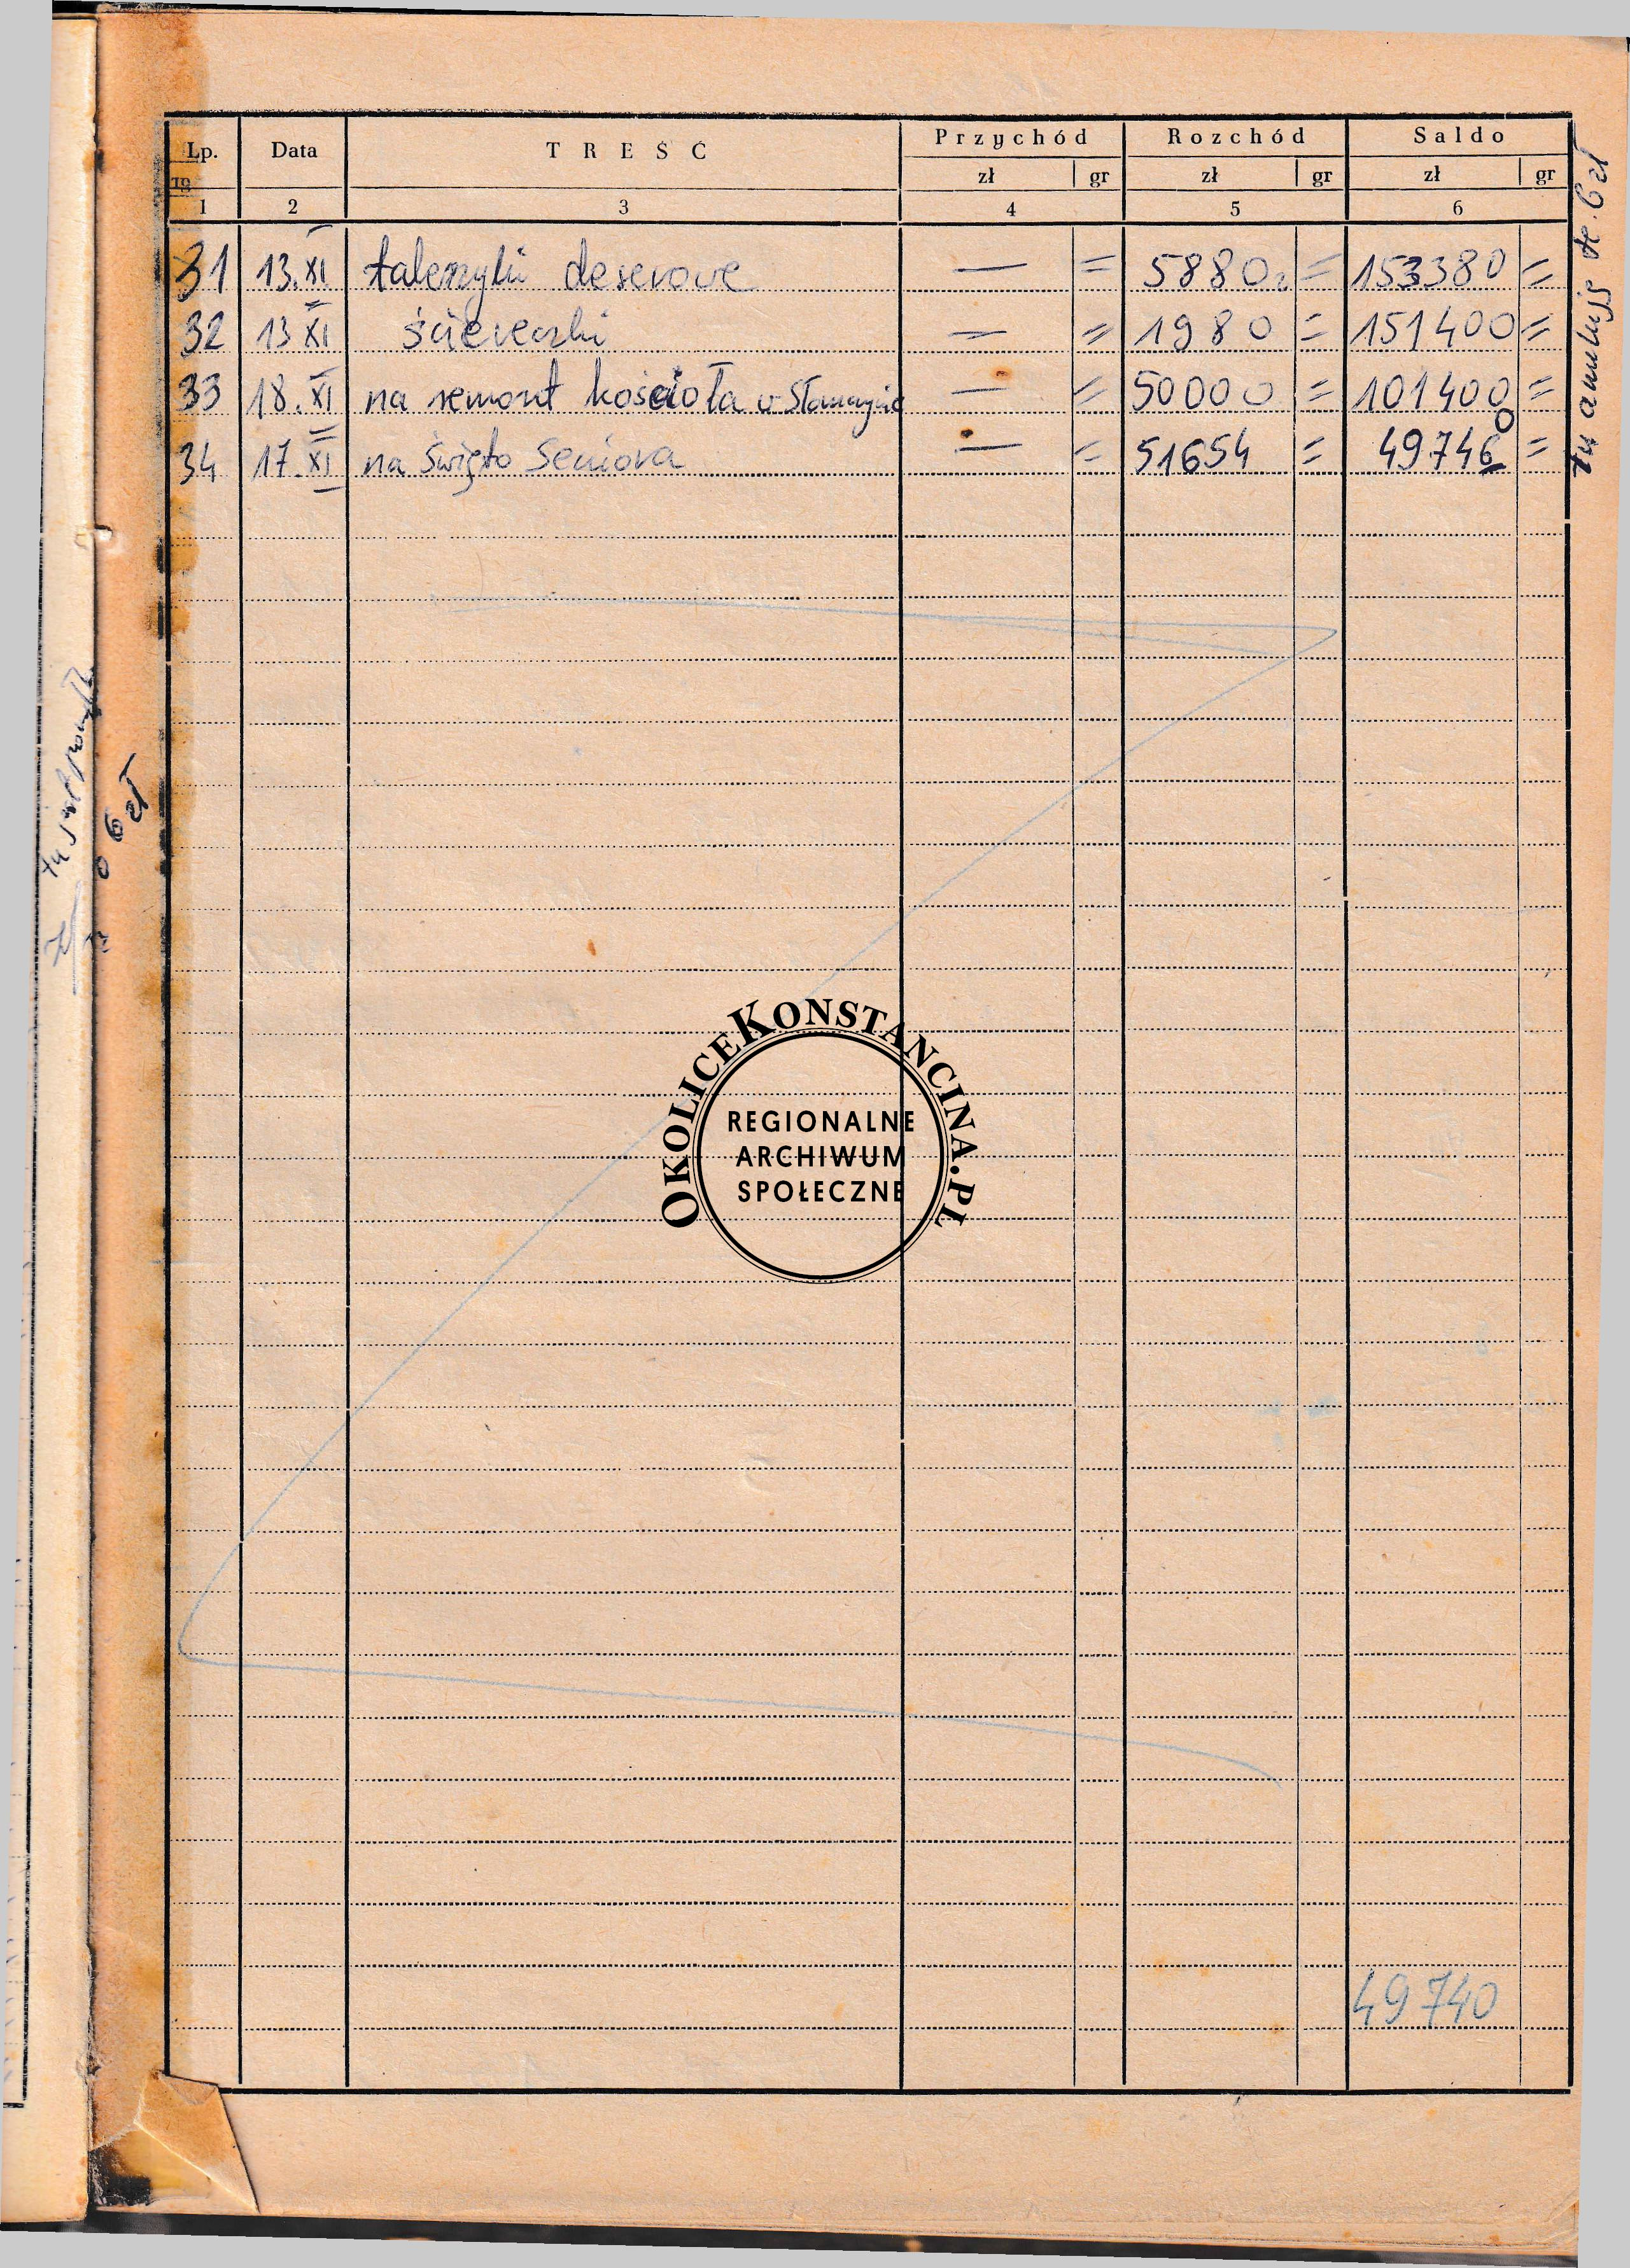 Lp. Data TREŚĆ Przychód Rozchód Saldo
zł gr zł gr zł gr
1 2 3 4 5 6
31 13.XI talerzyki deserowe — = 5880 = 153380 =
32 13 XI ściereczki — = 1980 = 151400 =
33 18.XI na remont kościoła w Słomczynie — = 50000 = 101400 =
34 17.XI na święto Seniora — = 51654 = 49746 =
0
tu anuluję te 6 zł
tu jest
o 6 zł
OKOLICEKONSTANCINA.PL
REGIONALNE
ARCHIWUM
SPOŁECZNE
49740